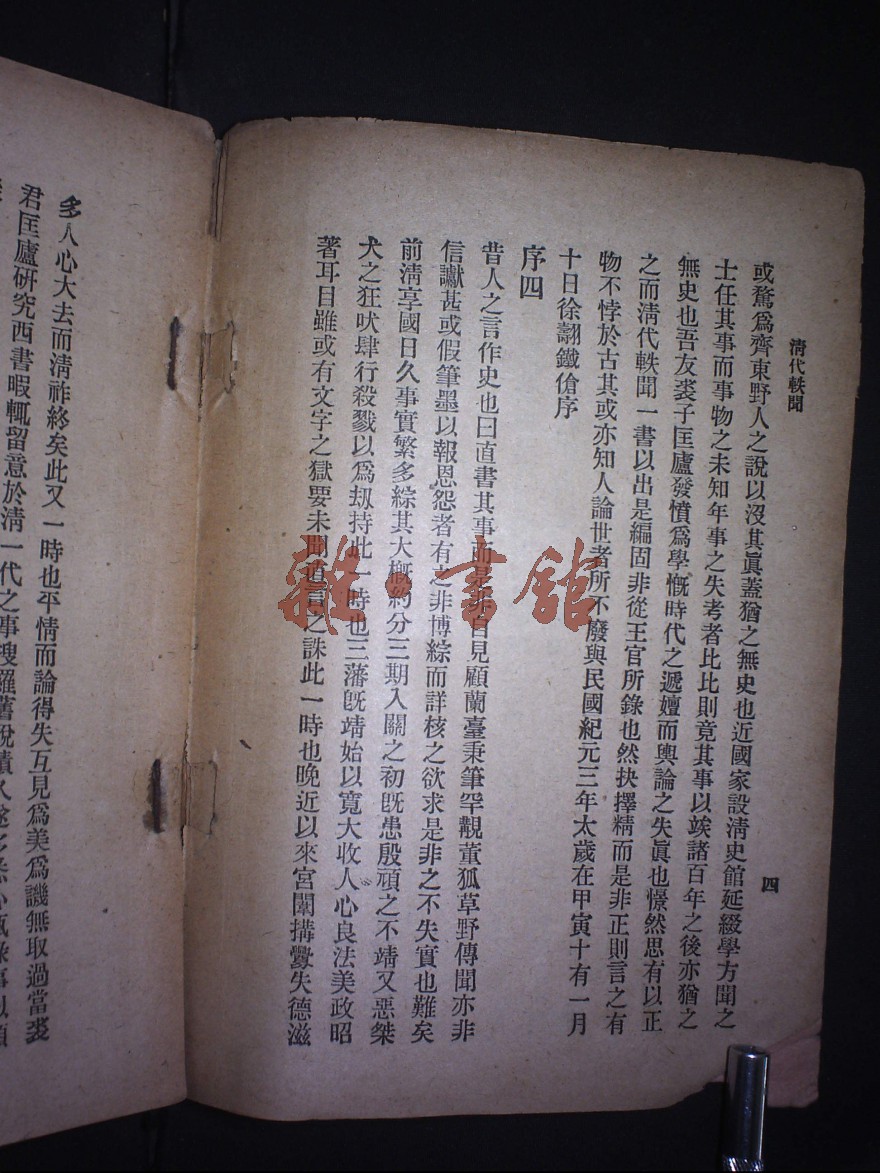 清代軼聞
四
或騖爲齊東野人之說以沒其眞蓋猶之無史也近國家設淸史館延綴學方聞之
士任其事而事物之未知年事之失考者比比則竟其事以竢諸百年之後亦猶之
無史也吾友裘子匡廬發憤爲學慨時代之遞嬗而輿論之失眞也憬然思有以正
之而淸代軼聞一書以出是編固非從王官所錄也然抉擇精而是非正則言之有
物不悖於古其或亦知人論世者所不廢與民國紀元三年太歲在甲寅十有一月
十日徐翿鐵傖序
序四
昔人之言作史也曰直書其事而是非自見顧蘭臺秉筆罕覯董狐草野傳聞亦非
信讞甚或假筆墨以報恩怨者有之非博綜而詳核之欲求是非之不失實也難矣
前淸享國日久事實繁多綜其大槪約分三期入關之初旣患殷頑之不靖又惡桀
犬之狂吠肆行殺戮以爲刼持此一時也三藩旣靖始以寬大收人心良法美政昭
著耳目雖或有文字之獄要未聞直言之誅此一時也晚近以來宮闈搆釁失德滋
多人心大去而淸祚終矣此又一時也平情而論得失互見爲美爲譏無取過當裘
君匡廬硏究西書暇輒留意於淸一代之事搜羅舊說積久遂多
雜·書館